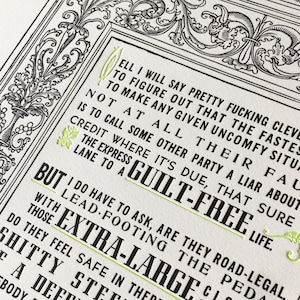 ELL I WILL SAY PRETTY FUCKING CLEV
TO FIGURE OUT THAT THE FASTES
TO MAKE ANY GIVEN UNCOMFY SITU
NOT AT ALL THEIR FAU
IS TO CALL SOME OTHER PARTY A LIAR ABOUT
CREDIT WHERE IT'S DUE, THAT SURE
THE EXPRESS
LANE TO A GUILT-FREE LIFE.
BUT I DO HAVE TO ASK, ARE THEY ROAD-LEGAL
LEAD-FOOTING THE PED
THOSE EXTRA-LARGE CL
DO THEY FEEL SAFE IN THE
SHITTY STE